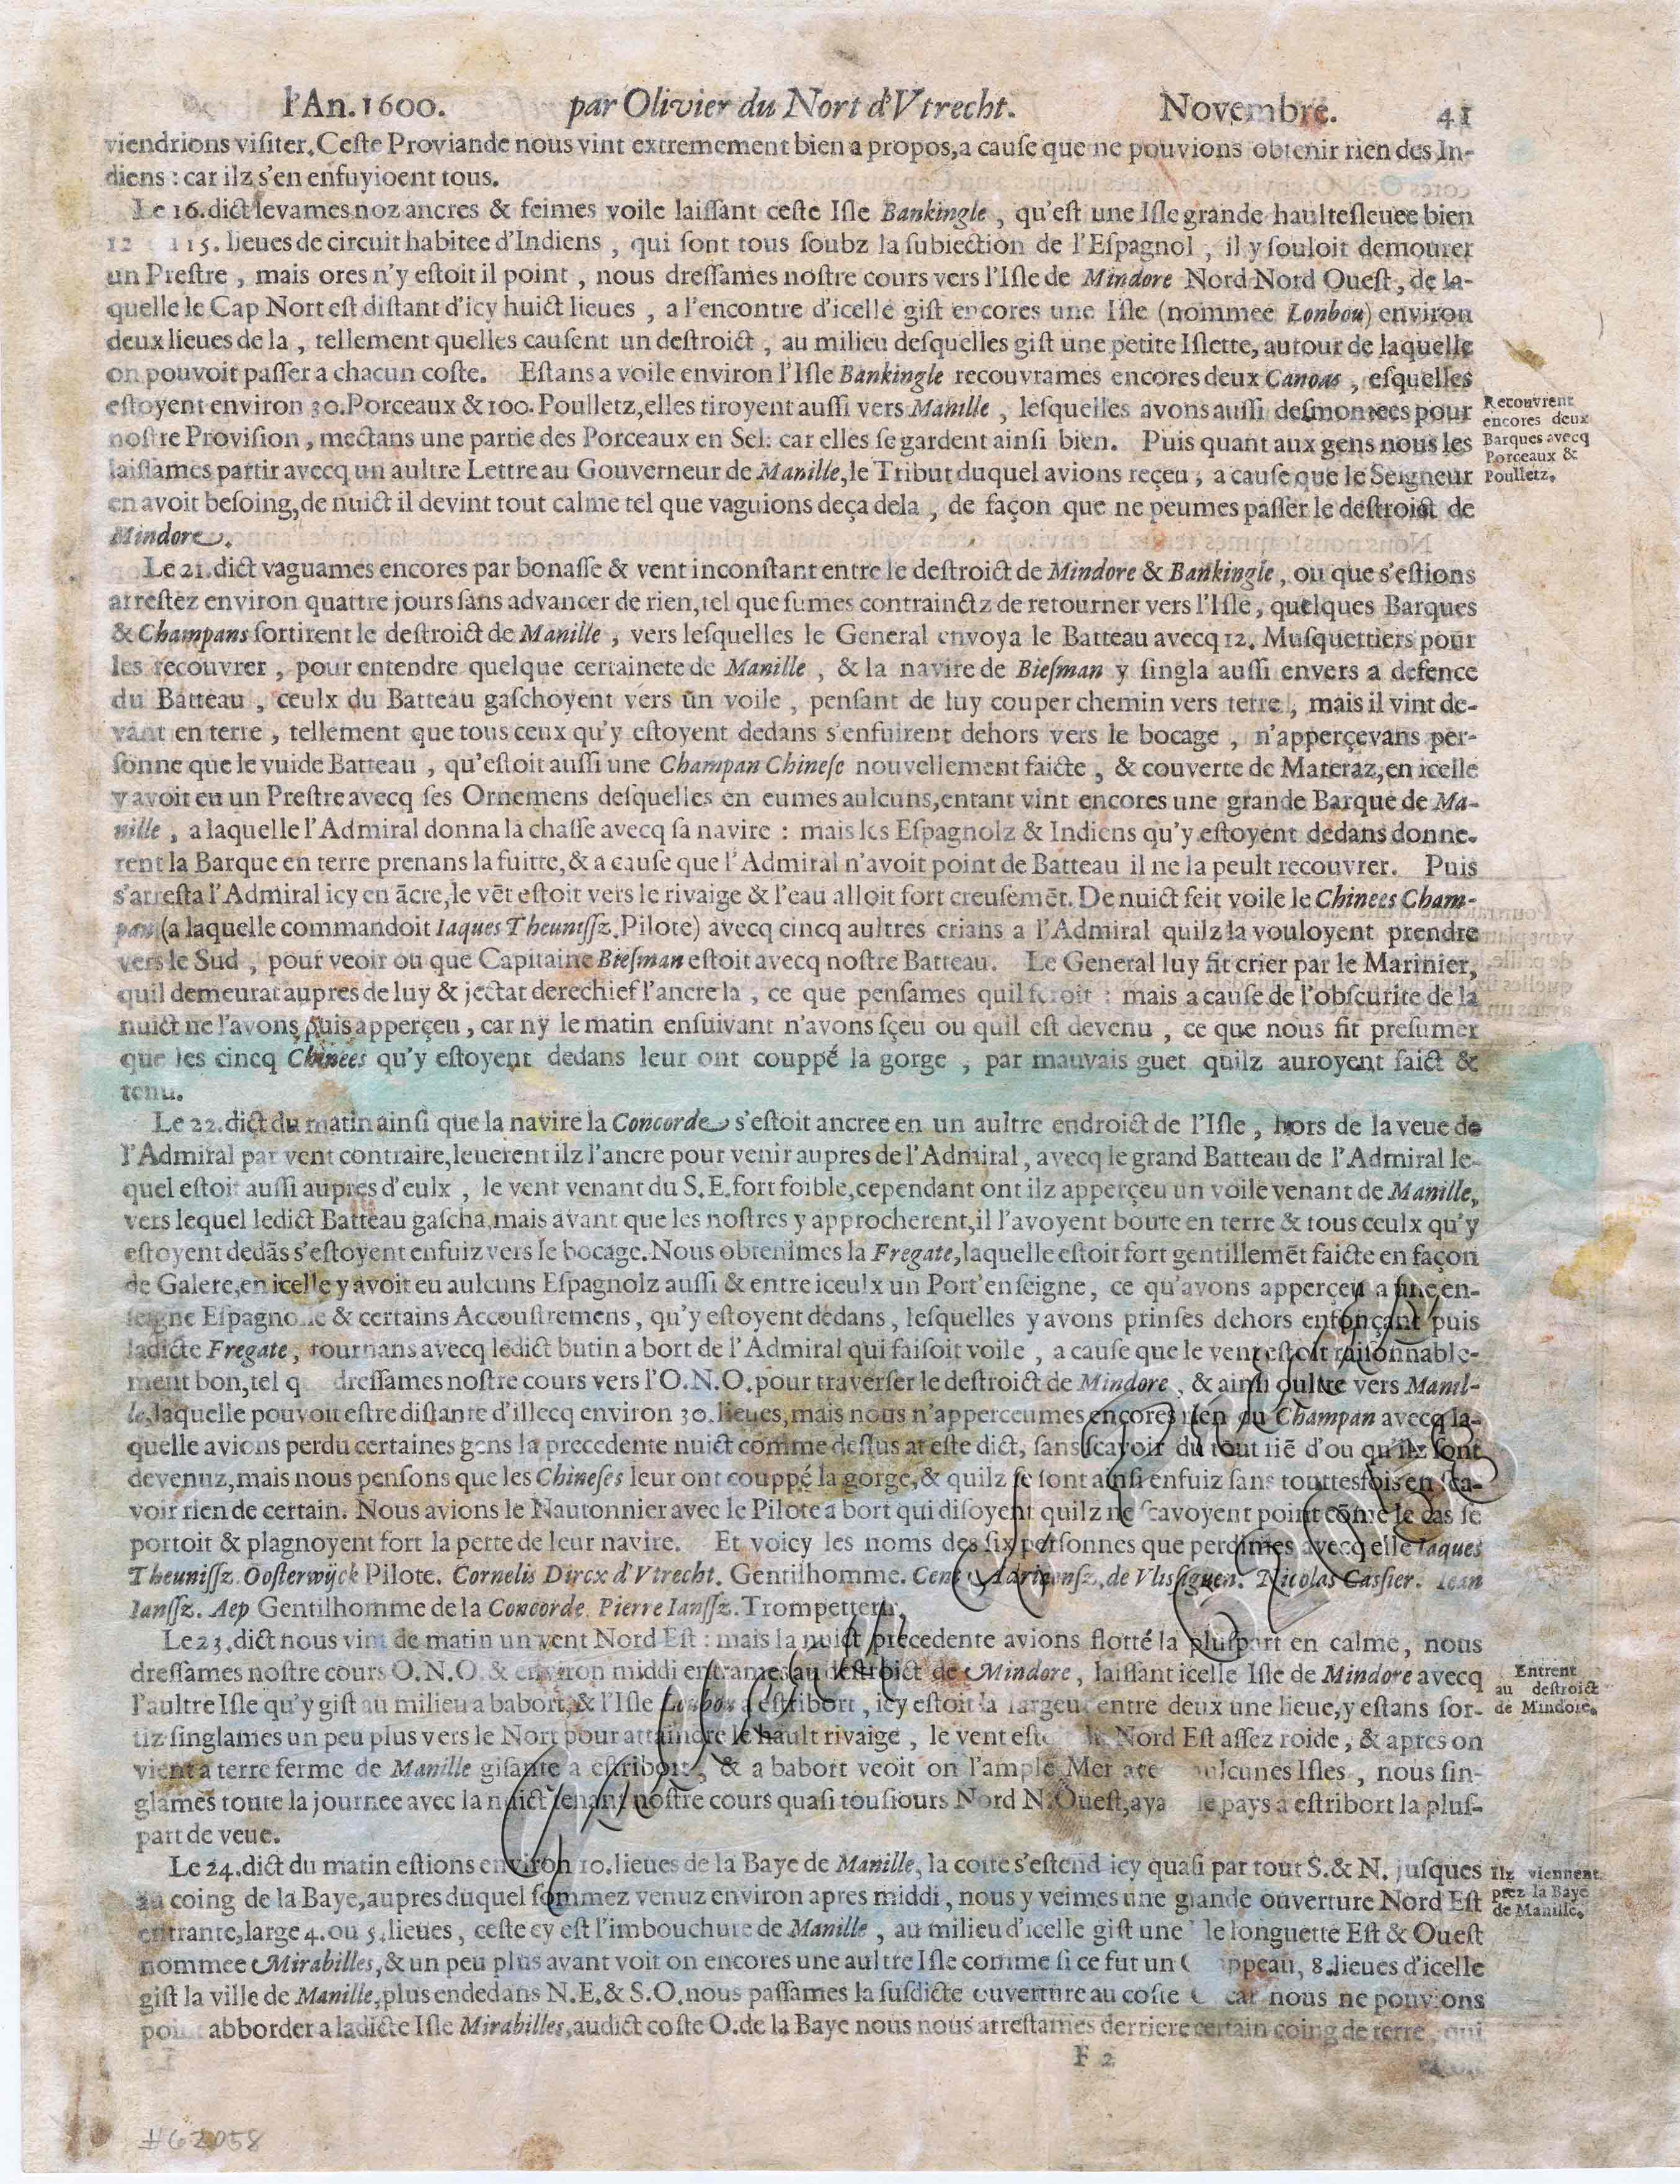 l'An. 1600. par Olivier du Nort d'Vtrecht. Novembre. 41
viendrions visiter. Ceste Proviande nous vint extremement bien a propos, a cause que ne pouvions obtenir rien des In-
diens : car ilz s'en enfuyioent tous.
Le 16. dict levames noz ancres & feimes voile laissant ceste Isle Bankingle, qu'est une Isle grande haultesleuee bien
12 15. lieues de circuit habitee d'Indiens, qui sont tous soubz la subiection de l'Espagnol, il y souloit demourer
un Prestre, mais ores n'y estoit il point, nous dressames nostre cours vers l'Isle de Mindore Nord Nord Ouest, de la-
quelle le Cap Nort est distant d'icy huict lieues, a l'encontre d'icelle gist encores une Isle (nommee Lonbou) environ
deux lieues de la, tellement quelles causent un destroict, au milieu desquelles gist une petite Islette, autour de laquelle
on pouvoit passer a chacun coste. Estans a voile environ l'Isle Bankingle recouvrames encores deux Canoas, esquelles
estoyent environ 30. Porceaux & 100. Poulletz, elles tiroyent aussi vers Manille, lesquelles avons aussi desmontees pour
nostre Provision, mectans une partie des Porceaux en Sel: car elles se gardent ainsi bien. Puis quant aux gens nous les
laissames partir avecq un aultre Lettre au Gouverneur de Manille, le Tribut duquel avions reçeu, a cause que le Seigneur
en avoit besoing, de nuict il devint tout calme tel que vaguions deça dela, de façon que ne peumes passer le destroict de
Mindore.
Retouvrent
encores deux
Barques avecq
Porceaux &
Poulletz.
Le 21. dict vaguames encores par bonasse & vent inconstant entre le destroict de Mindore & Bankingle, ou que s'estions
arrestez environ quattre jours sans advancer de rien, tel que fumes contrainctz de retourner vers l'Isle, quelques Barques
& Champans sortirent le destroict de Manille, vers lesquelles le General envoya le Batteau avecq 12. Musquettiers pour
les recouvrer, pour entendre quelque certainete de Manille, & la navire de Biesman y singla aussi envers a defence
du Batteau, ceulx du Batteau gaschoyent vers un voile, pensant de luy couper chemin vers terre, mais il vint de-
vant en terre, tellement que tous ceux qu'y estoyent dedans s'enfuirent dehors vers le bocage, n'apperçevans per-
sonne que le vuide Batteau, qu'estoit aussi une Champan Chinese nouvellement faicte, & couverte de Materaz, en icelle
y avoit eu un Prestre avecq ses Ornemens desquelles en eumes aulcuns, entant vint encores une grande Barque de Ma-
nille, a laquelle l'Admiral donna la chasse avecq sa navire : mais les Espagnolz & Indiens qu'y estoyent dedans donne-
rent la Barque en terre prenans la fuitte, & a cause que l'Admiral n'avoit point de Batteau il ne la peult recouvrer. Puis
s'arresta l'Admiral icy en ãcre, le vẽt estoit vers le rivaige & l'eau alloit fort creusemẽt. De nuict feit voile le Chinees Cham-
pan (a laquelle commandoit Iaques Theunissz. Pilote) avecq cincq aultres crians a l'Admiral quilz la vouloyent prendre
vers le Sud, pour veoir ou que Capitaine Biesman estoit avecq nostre Batteau. Le General luy fit crier par le Marinier,
quil demeurat aupres de luy & jectat derechief l'ancre la, ce que pensames quil feroit : mais a cause de l'obscurite de la
nuict ne l'avons puis apperçeu, car ny le matin ensuivant n'avons sçeu ou quil est devenu, ce que nous fit presumer
que les cincq Chinees qu'y estoyent dedans leur ont couppé la gorge, par mauvais guet quilz auroyent faict &
tenu.
Le 22. dict du matin ainsi que la navire la Concorde s'estoit ancree en un aultre endroict de l'Isle, hors de la veue de
l'Admiral par vent contraire, leuerent ilz l'ancre pour venir aupres de l'Admiral, avecq le grand Batteau de l'Admiral le-
quel estoit aussi aupres d'eulx, le vent venant du S.E. fort foible, cependant ont ilz apperçeu un voile venant de Manille,
vers lequel ledict Batteau gascha, mais avant que les nostres y approcherent, il l'avoyent boute en terre & tous ceulx qu'y
estoyent dedãs s'estoyent enfuiz vers le bocage. Nous obtenimes la Fregate, laquelle estoit fort gentillemẽt faicte en façon
de Galere, en icelle y avoit eu aulcuns Espagnolz aussi & entre iceulx un Port'enseigne, ce qu'avons apperçeu a une en-
seigne Espagnolle & certains Accoustremens, qu'y estoyent dedans, lesquelles y avons prinses dehors enfonçant puis
ladicte Fregate, tournans avecq ledict butin a bort de l'Admiral qui faisoit voile, a cause que le vent estoit raisonnable-
ment bon, tel q dressames nostre cours vers l'O.N.O. pour traverser le destroict de Mindore, & ainsi oultre vers Manil-
le, laquelle pouvoit estre distante d'illecq environ 30. lieues, mais nous n'apperceumes encores rien du Champan avecq la-
quelle avions perdu certaines gens la precedente nuict comme dessus at este dict, sans scavoir du tout riẽ d'ou qu'ilz sont
devenuz, mais nous pensons que les Chineses leur ont couppé la gorge, & quilz se sont ainsi enfuiz sans touttesfois en sca-
voir rien de certain. Nous avions le Nautonnier avec le Pilote a bort qui disoyent quilz ne scavoyent point cõme le cas se
portoit & plagnoyent fort la perte de leur navire. Et voicy les noms des six personnes que perdimes avecq elle Iaques
Theunissz. Oosterwijck Pilote. Cornelis Dircx d'Vtrecht. Gentilhomme. Cent Adriaensz. de Vlissiguen. Nicolas Cassier. Iean
Ianssz. Aep Gentilhomme de la Concorde. Pierre Ianssz. Trompetteur.
Le 23. dict nous vint de matin un vent Nord Est : mais la nuict precedente avions flotté la pluspart en calme, nous
dressames nostre cours O.N.O. & environ middi entrames au destroict de Mindore, laissant icelle Isle de Mindore avecq
l'aultre Isle qu'y gist au milieu a babort, & l'Isle Loubou a estribort, icy estoit la largeur entre deux une lieue, y estans sor-
tiz singlames un peu plus vers le Nort pour attaindre le hault rivaige, le vent est Nord Est assez roide, & apres on
vient a terre ferme de Manille gisante a estribort, & a babort veoit on l'ample Mer ave aulcunes Isles, nous sin-
glames toute la journee avec la nuict tenant nostre cours quasi tousiours Nord N. Ouest, aya le pays a estribort la plus-
part de veue.
Entrent
au destroict
de Mindore.
Le 24. dict du matin estions environ 10. lieues de la Baye de Manille, la coste s'estend icy quasi par tout S. & N. jusques
au coing de la Baye, aupres duquel sommez venuz environ apres middi, nous y veimes une grande ouverture Nord Est
entrante, large 4. ou 5. lieues, ceste cy est l'imbouchure de Manille, au milieu d'icelle gist une le longuette Est & Ouest
nommee Mirabilles, & un peu plus avant voit on encores une aultre Isle comme si ce fut un C appeau, 8. lieues d'icelle
gist la ville de Manille, plus endedans N.E. & S.O. nous passames la susdicte ouverture au coste car nous ne pouvions
point abborder a ladicte Isle Mirabilles, audict coste O. de la Baye nous nous arrestames derriere certain coing de terre, qui
Ilz viennent
prez la Baye
de Manille.
F 2
#62058